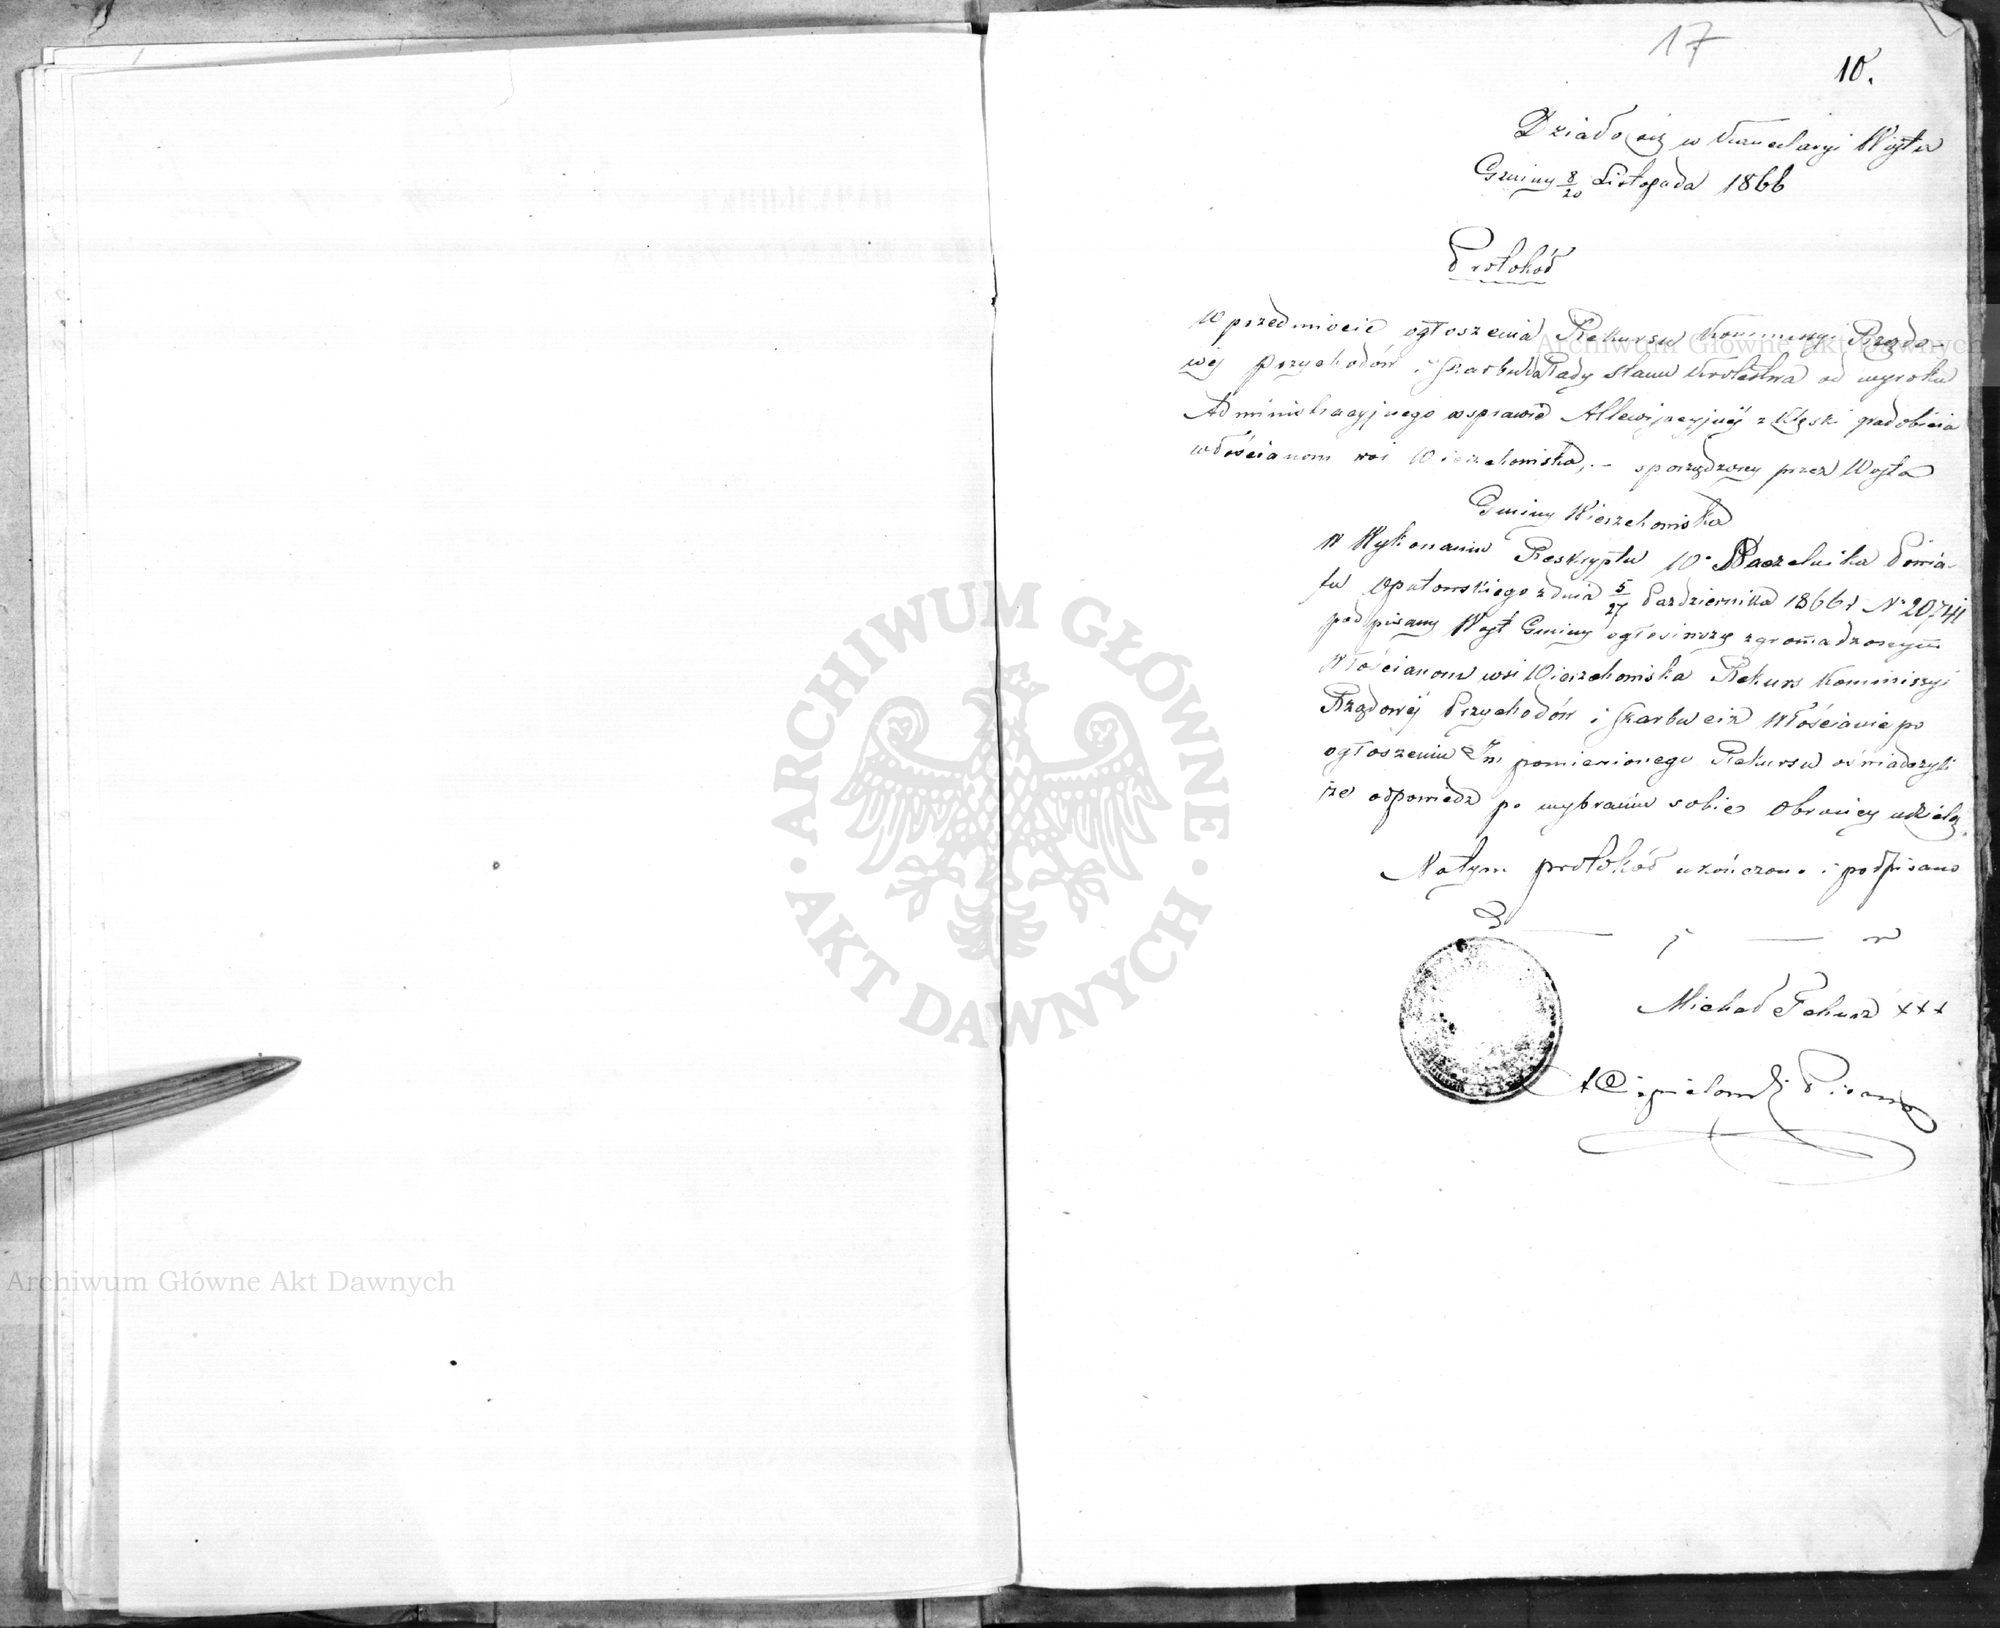 17
10.
Działo się w Kancelaryi Wójta
Gminy 8/20 Listopada 1866
Protokół
W przedmiocie ogłoszenia Rekursu Kommissyi Rządo-
wej Przychodów i Skarbu do Rady Stanu Królestwa od wyroku
Administracyjnego w sprawie Allewijacyjnéj z klęski gradobicia
włościanom wsi Wierzchowiska, - sporządzony przez Wójta
Gminy Wierzchowiska
W Wykonaniu Reskryptu W. Naczelnika Powia-
tu Opatowskiego z dnia 5/27 Października 1866 r No 20741
podpisany Wójt Gminy ogłosiwszy zgromadzonym
Włościanom wsi Wierzchowiska Rekurs Kommissyi
Rządowéj Przychodów i Skarbu ciż Włościanie po
ogłoszeniu Im pomienionego Rekursu oświadczyli
że odpowiedz po wybraniu sobie Obrońcy udzielą.
Natym protokół ukończono i podpisano
Michał Pekusz +++
Pisarz
ARCHIWUM GŁÓWNE
AKT DAWNYCH
Archiwum Główne Akt Dawnych
Archiwum Główne Akt Dawnych